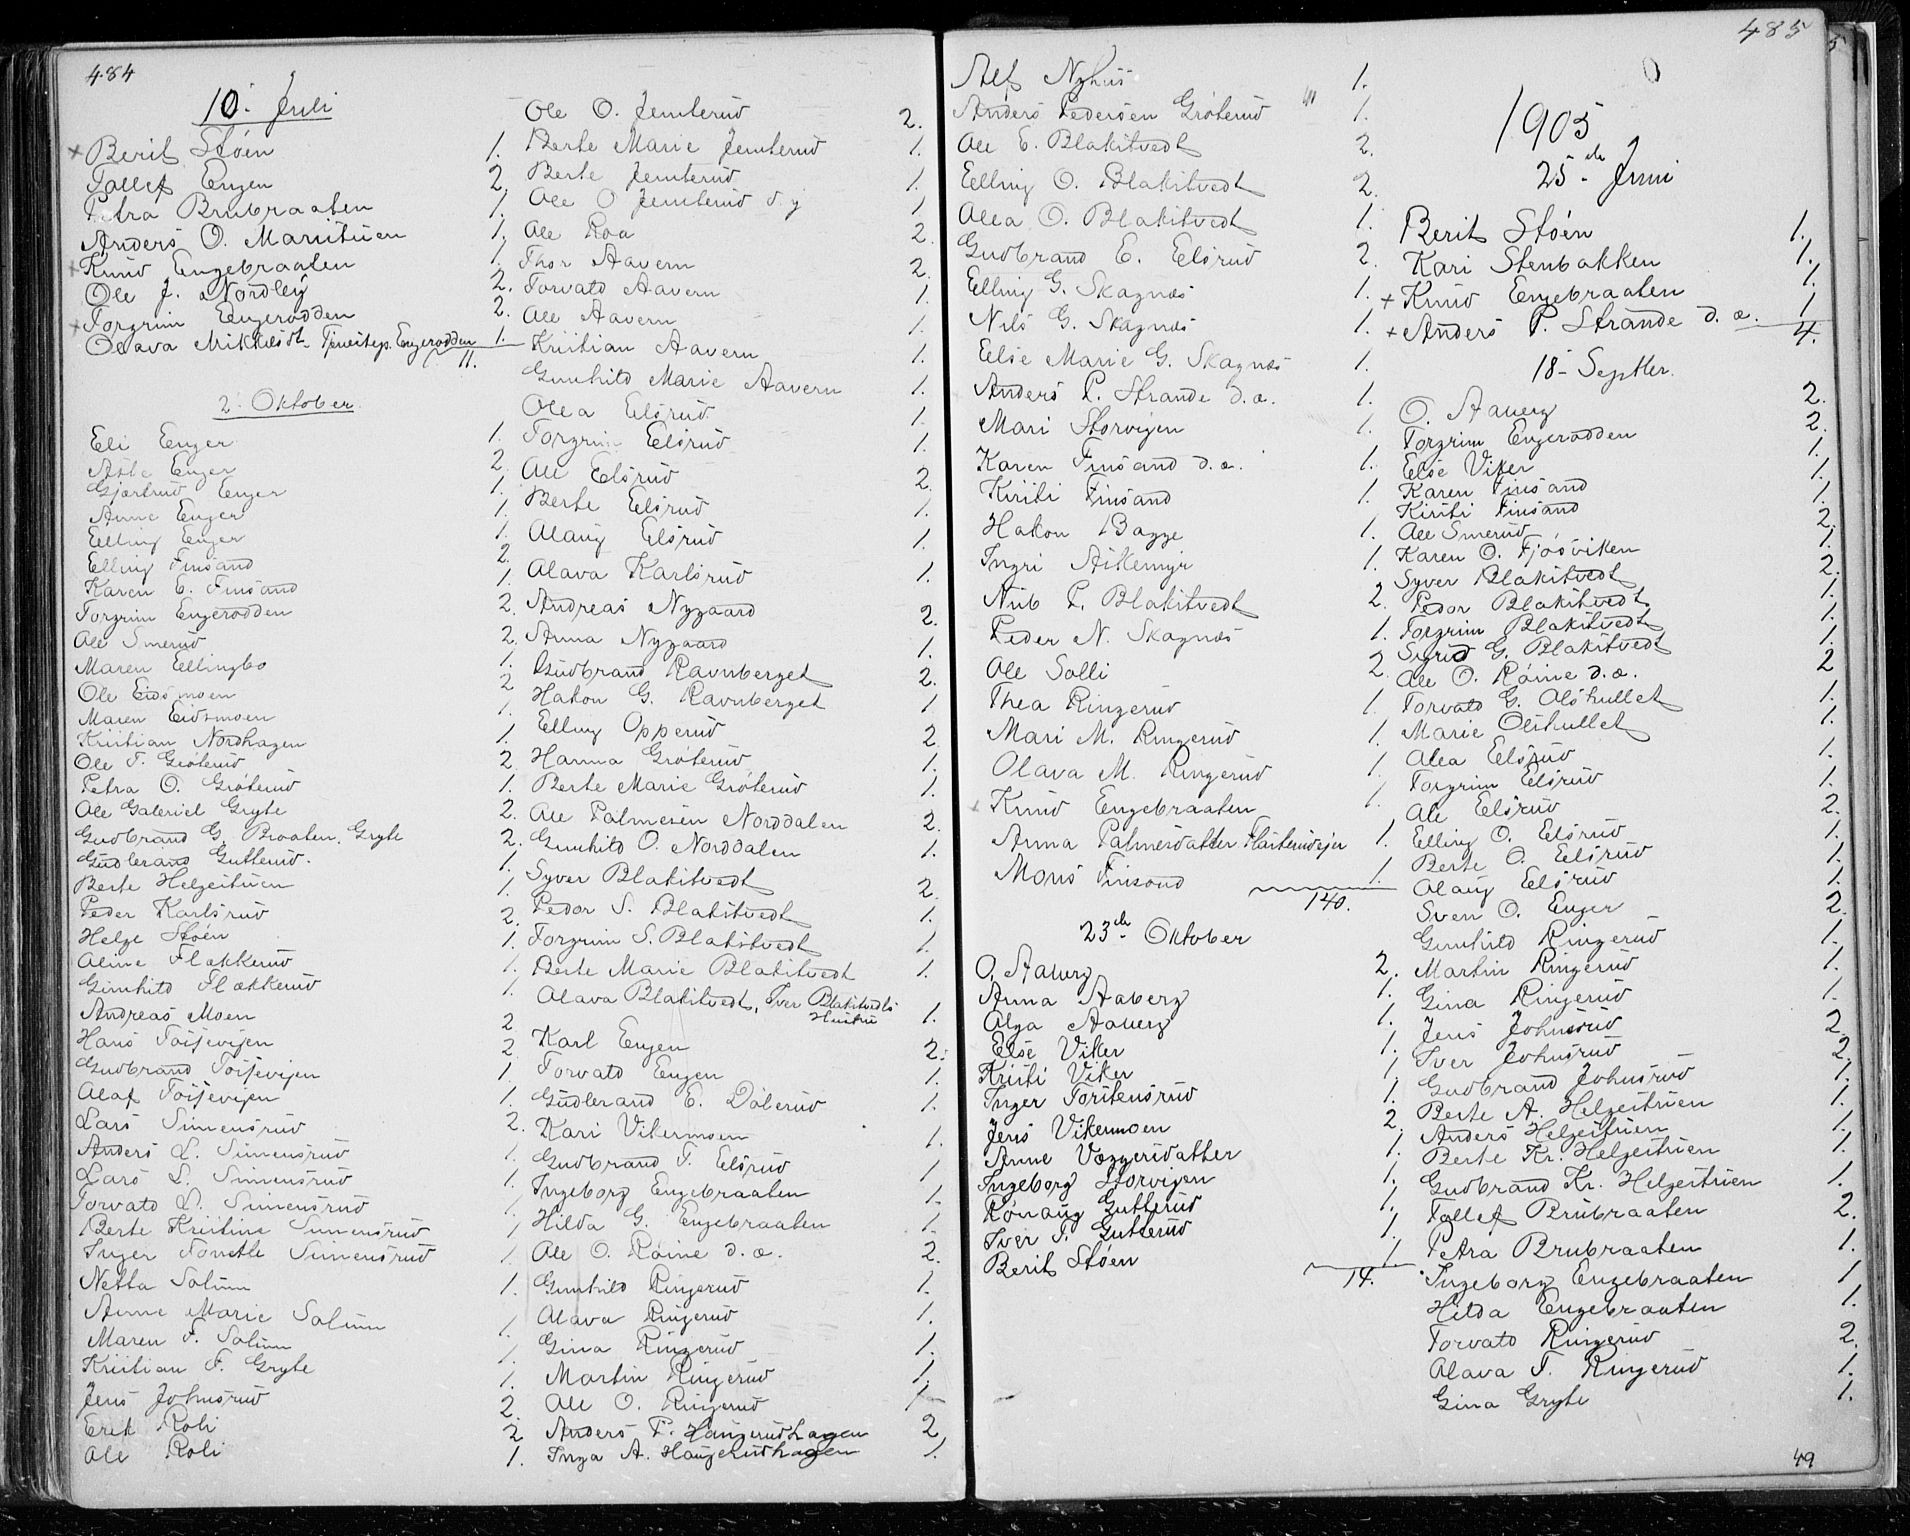 484
10. Juli
× Berit Støen 1.
Tollef Engen 2.
Petra Brubraaten 1.
Anders O. Maristuen 1.
× Knud Engebraaten 1.
Ole J. Nordby 2.
× Torgrim Engerodden 2.
Olava Mikkelsdt. Tjenestep. Engerodden 1.
11.
2. Oktober.
Eli Enger 1.
Atle Enger 2.
Gjertrud Enger 1.
Anne Enger 1.
Elling Enger 1.
Elling Finsand 2.
Karen E. Finsand 1.
Torgrim Engerodden 2.
Ole Smerud 2.
Maren Ellingbo 1.
Ole Eidsmoen 2
Maren Eidsmoen 1.
Kristian Nordhagen 1.
Ole T. Grøterud 2.
Petra O. Grøterud 1.
Ole Gabriel Gryte 2.
Gudbrand G. Braaten, Gryte 2.
Gudbrand Gutterud. 1.
Berte Helgestuen 1.
Peder Karlsrud 2.
Helge Støen 1.
Oline Flækkerud 1.
Gunhild Flækkerud 1.
Andreas Moen 2
Hans Toisevijen 2
Gudbrand Toisevijen 1.
Olaf Toisevijen 1.
Lars Simensrud 2.
Anders L. Simensrud 1.
Lars L. Simensrud 1.
Torvald L. Simensrud 1.
Berte Kristine Simensrud 1
Inger Sonette Simensrud 1.
Netta Solum 1.
Anne Marie Solum 1.
Maren T. Solum 1.
Kristian T. Gryte 1.
Jens Johnsrud 2.
Erik Roli 2
Ole Roli 1.
Ole O. Jemterud 2.
Berte Marie Jemterud 1.
Berte Jemterud 1.
Ole O. Jemterud d. y 1.
Ole Roa 2.
Thor Aavern 2.
Torvald Aavern 1.
Ole Aavern 1.
Kristian Aavern 1.
Gunhild Marie Aavern 1.
Olea Elsrud 1.
Torgrim Elsrud 1.
Ole Elsrud 2.
Berte Elsrud 1.
Olaug Elsrud 1.
Olava Karlsrud 1.
Andreas Nygaard 2.
Anna Nygaard 1.
Gudbrand Ravnberget 2.
Hakon G. Ravnberget 1
Elling Opperud 2
Hanna Grøterud 1.
Berte Marie Grøterud 1.
Ole Palmesen Norddalen 2.
Gunhild O. Norddalen 1.
Syver Blakstvedt 2.
Pedor S. Blakstvedt 1.
Torgrim S. Blakstvedt 1.
Berte Marie Blakstvedt 1.
Olava Blakstvedt, Iver Blakstvedts
Hustru 1.
Karl Engen 2.
Torvald Engen 1.
Gudbrand E. Dølerud 1.
Kari Vikermoen 1.
Gudbrand T. Elsrud 1
Ingeborg Engebraaten 1.
Hilda G. Engebraaten 1.
Ole O. Røine d. æ. 2.
Gunhild Ringerud 1.
Olava Ringerud 1.
Gina Ringerud 1.
Martin Ringerud 1.
Ole O. Ringerud 1
Anders P. Haugerudhagen 2
Inga A. Haugerudhagen 1.
485
Alf Nyhus 1.
Anders Pedersen Grøterud 1.
Ole E. Blakstvedt 2.
Elling O. Blakstvedt 2.
Olea O. Blakstvedt 1.
Gudbrand E. Elsrud 2.
Elling G. Skagnæs 1.
Nils G. Skagnæs 1.
Else Marie G. Skagnæs 1.
Anders P. Strande d. æ. 1.
Mari Storvigen 1.
Karen Finsand d. æ. 1.
Kirsti Finsand 1.
Hakon Bagge 1.
Ingri Askemyr 1.
Nub P. Blakstvedt 2.
Peder N. Skagnæs 1.
Ole Solli 2.
Thea Ringerud 1.
Mari M. Ringerud 1.
Olava M. Ringerud 1
× Knud Engebraaten 1.
Anna Palmesdatter Flaskerudejer 1.
Mons Finsand 1.
140.
23de Oktober
O. Aaberg 2.
Anna Aaberg 1.
Olga Aaberg 1.
Else Viker 1.
Kristi Viker 1
Inger Torstensrud 1.
Jens Vikermoen 2.
Anne Væggersdatter 1.
Ingeborg Storvigen 1.
Rønaug Gutterud 1
Iver T. Gutterud 1
Berit Støen 1
14.
1905
25de Juni
Berit Støen 1.
Kari Stenbakken 1.
× Knud Engebraaten 1.
× Anders P. Strande d. æ. 1
4.
18. Septbr.
O. Aaberg 2.
Torgrim Engerodden 2.
Else Viker 1.
Karen Finsand 1.
Kirsti Finsand 1.
Ole Smerud 2.
Karen O. Fjøsviken 1.
Syver Blakstvedt 2.
Pedor Blakstvedt 1.
Torgrim Blakstvedt 1.
Sigrid G. Blakstvedt 1.
Ole O. Røine d. æ. 2
Torvald G. Olshullet 1.
Marie Olshullet 1.
Olea Elsrud 1.
Torgrim Elsrud 1.
Ole Elsrud 2.
Elling O. Elsrud 1.
Berte O. Elsrud 1.
Olaug Elsrud 1.
Sven O. Enger 2.
Gunhild Ringerud 1.
Martin Ringerud 1.
Gina Ringerud 1.
Jens Johnsrud 2.
Iver Johnsrud 2.
Gudbrand Johnsrud 1.
Berte A. Helgestuen 1.
Anders Helgestuen 1.
Berte Kr. Helgestuen 1.
Gudbrand Kr. Helgestuen 1.
Tollef Brubraaten 2.
Petra Brubraaten 1.
Ingeborg Engebraaten 1
Hilda Engebraaten 1.
Torvald Ringerud 2.
Olava T. Ringerud 1.
Gina Gryte 1.
49